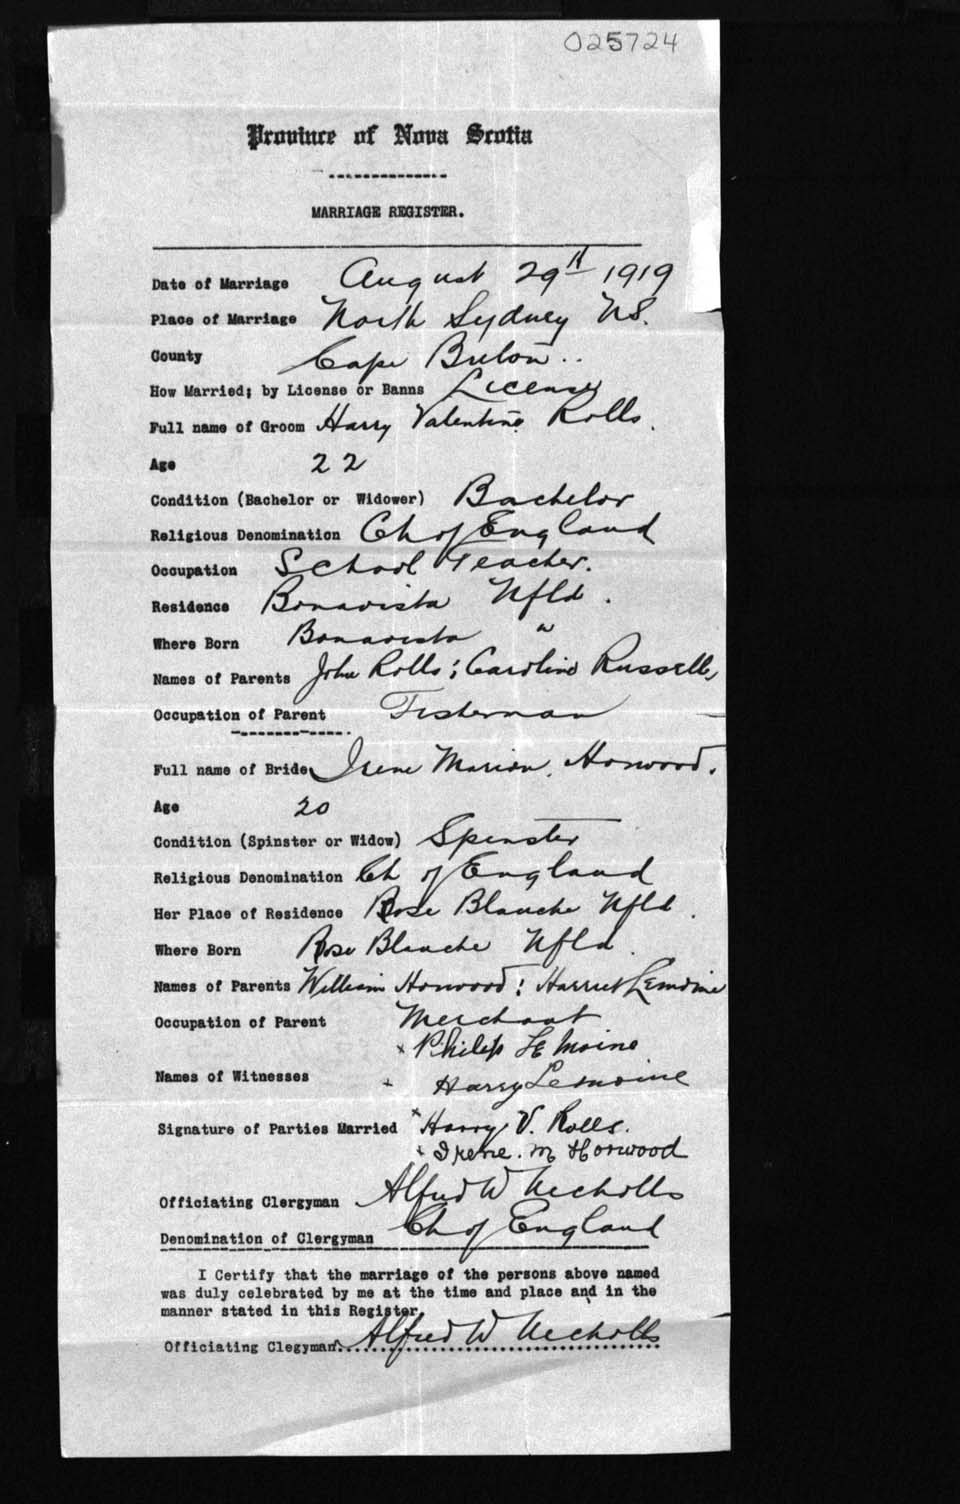 025724
Province of Nova Scotia
MARRIAGE REGISTER.
Date of Marriage August 29th 1919
Place of Marriage North Sydney N.S.
County Cape Breton..
How Married; by License or Banns License
Full name of Groom Harry Valentine Rolls.
Age 22
Condition (Bachelor or Widower) Bachelor
Religious Denomination Ch of England
Occupation School Teacher.
Residence Bonavista Nfld.
Where Born Bonavista "
Names of Parents John Rolls; Caroline Russell,
Occupation of Parent Fisherman
Full name of Bride Irene Marion. Horwood.
Age 20
Condition (Spinster or Widow) Spinster
Religious Denomination Ch of England
Her Place of Residence Rose Blanche Nfld.
Where Born Rose Blanche Nfld.
Names of Parents William Horwood: Harriet Lemoine
Occupation of Parent Merchant
x Philip Le Moine
Names of Witnesses + Harry Lemoine
Signature of Parties Married x Harry V. Rolls.
x Irene. M Horwood
Officiating Clergyman Alfred W Nicholls
Denomination of Clergyman Ch of England
I Certify that the marriage of the persons above named
was duly celebrated by me at the time and place and in the
manner stated in this Register.
Officiating Clegyman. Alfred W Nicholls